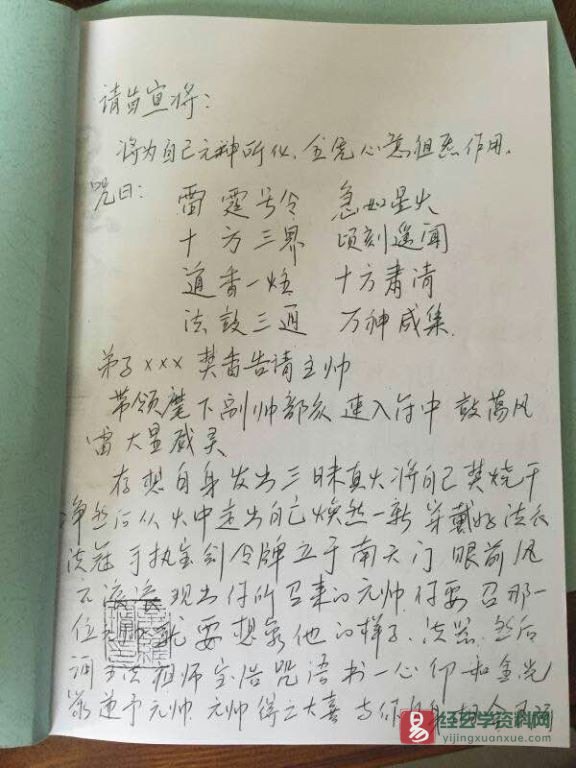 请旨宣将：
将为自己元神所化，全凭心意担恶作用。
咒曰：
雷霆号令 急如星火
十方三界 顷刻遥闻
道香一炷 十方肃清
法鼓三通 万神咸集
弟子×××焚香告请主帅
带领麾下副帅部众 速入符中 鼓荡风
雷大显威灵
存想自身发出三昧真火将自己焚烧干
净然后从火中走出自己焕然一新 穿戴好法衣
法冠 手执宝剑令牌立于南天门 眼前风
云滚滚 现出你所召来的元帅 你要召那一
位 就要想象他的样子、法器、然后
诵 法祖师宝诰咒语书一心 如金光
递予元帅 元帅得之大喜 与你
易
经艺学资料网
yijingxuanxue.com